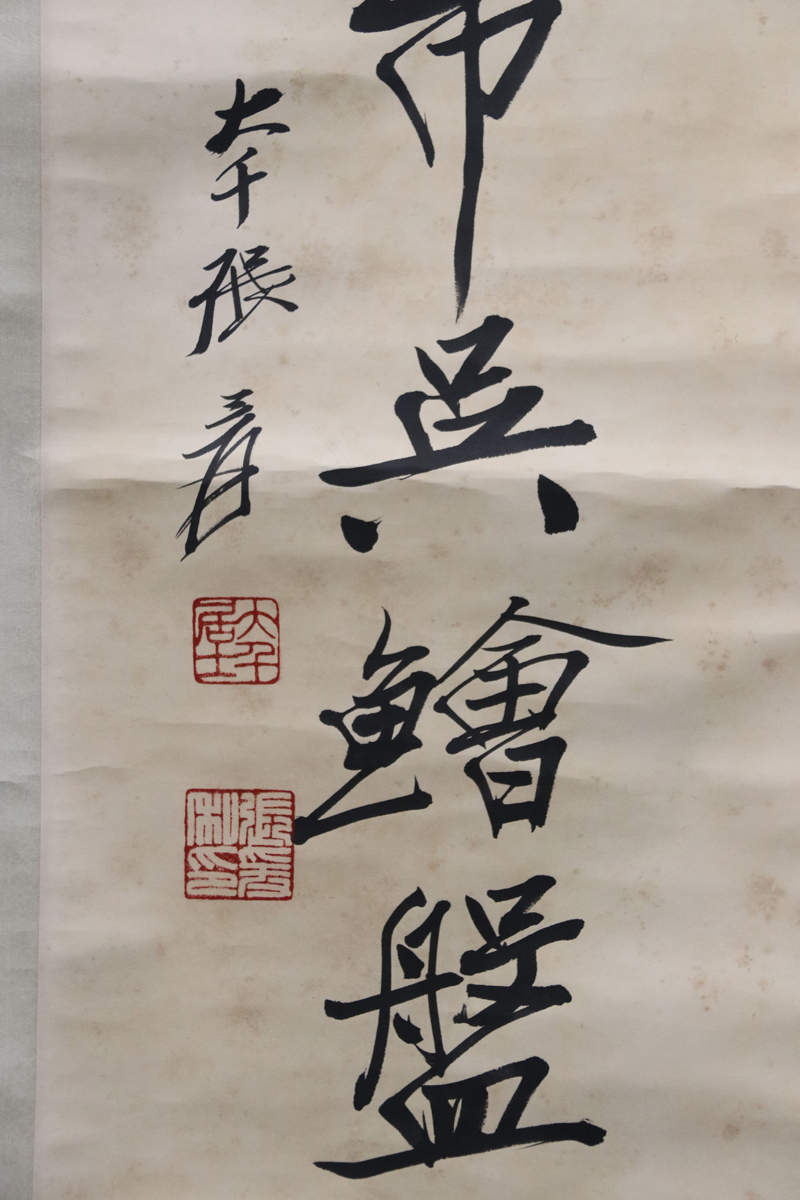 帀吳鱠盤
大千張爰
大千居士
張爰私印